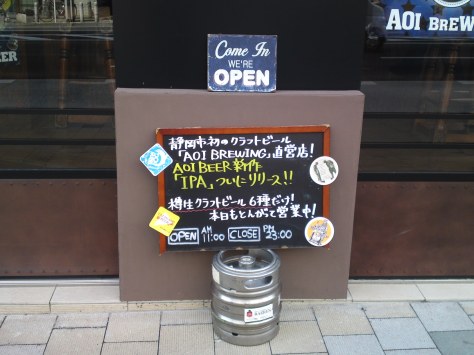 AOI BREW
Come In
WE'RE
OPEN
静岡市初のクラフトビール
「AOI BREWING」直営店!
AOI BEER 新作
「IPA」ついにリリース!!
樽生クラフトビール6種だけ!
本日もとんがって営業中!
OPEN AM 11:00 CLOSE PM 23:00